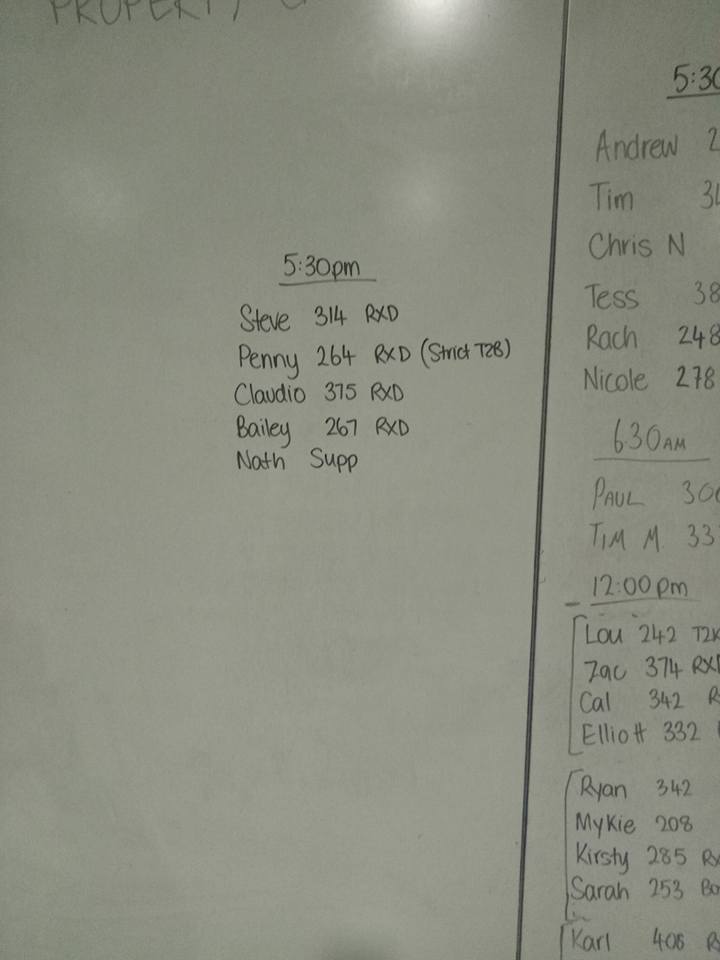 PROPERTY
5:30pm
Steve 314 RXD
Penny 264 RXD (Strict T2B)
Claudio 375 RXD
Bailey 267 RXD
Nath Supp
5:30
Andrew 2
Tim
Chris N
Tess 38
Rach 248
Nicole 278
630AM
PAUL 300
TIM M 33
12:00pm
Lou 242
Zac 374 RXD
Cal 342 R
Elliott 332
Ryan 342
Mykie 208
Kirsty 285 Rx
Sarah 253 Bo
Karl 406 R